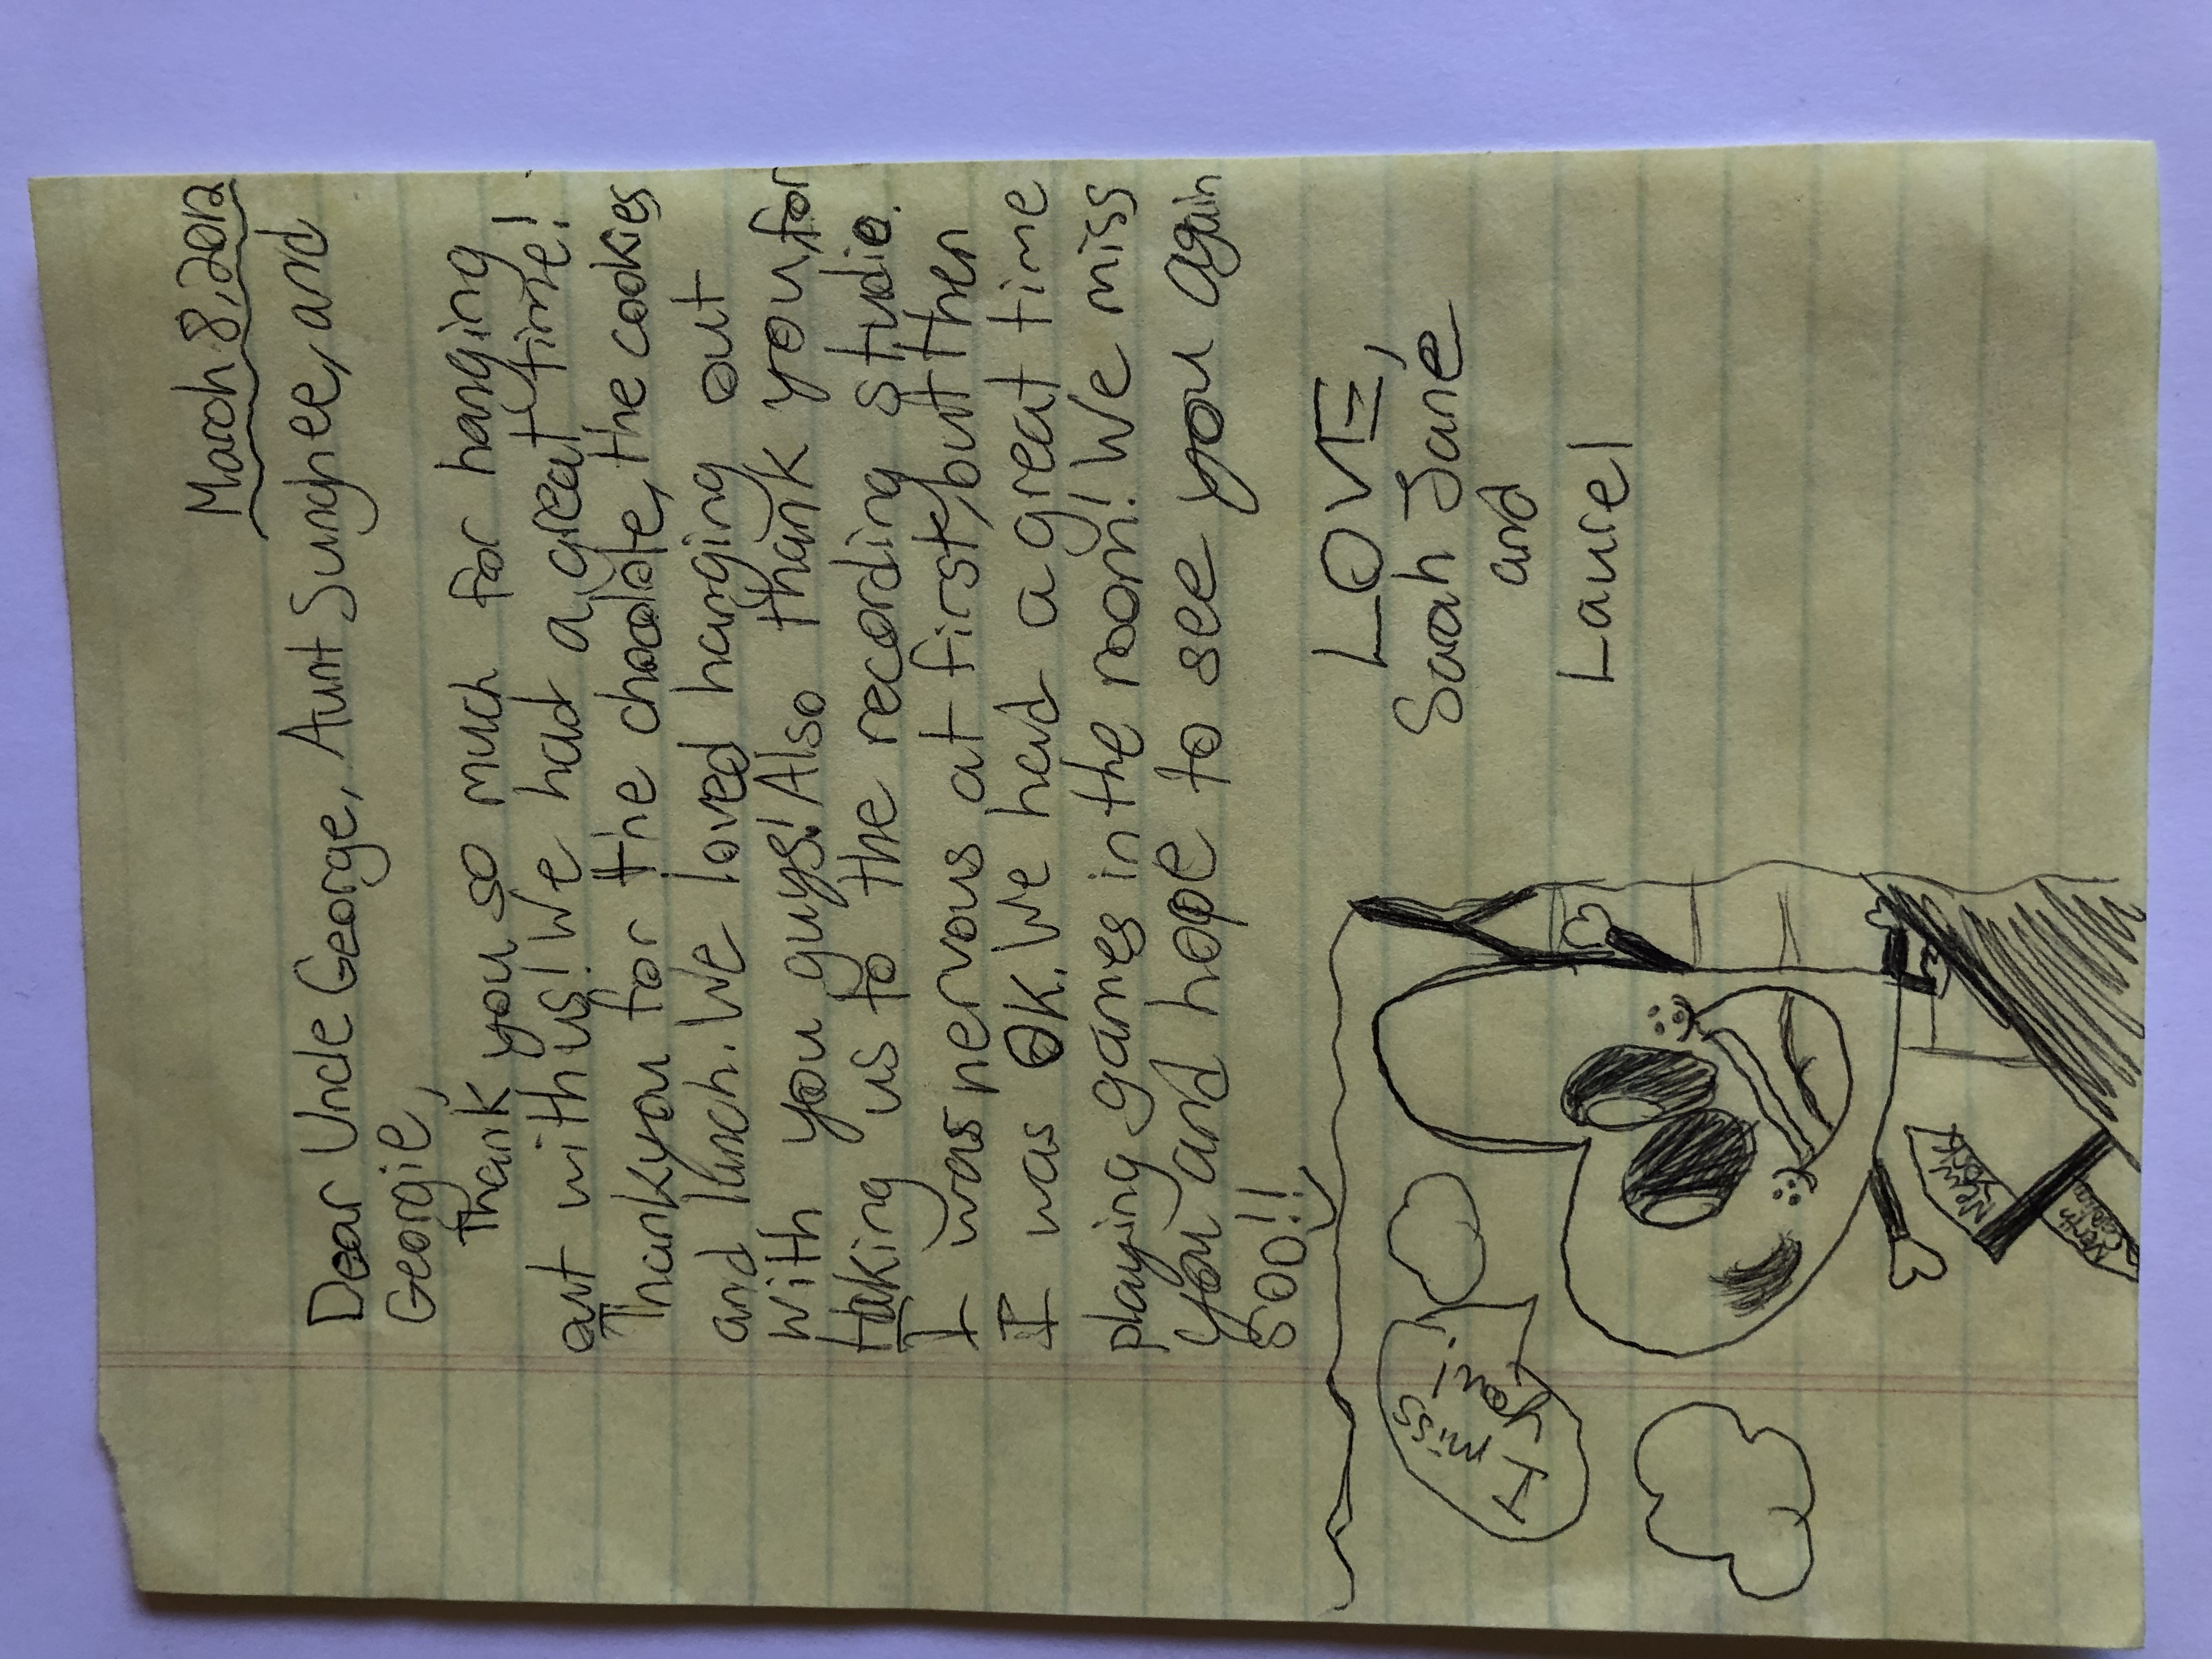 March 8, 2012
Dear Uncle George, Aunt Sunghee, and
Georgie,
Thank you so much for hanging
out with us! We had a great time!
Thankyou for the chocolate, the cookies
and lunch. We loved hanging out
with you guys! Also thank you for
taking us to the recording studio.
I was nervous at first, but then
I was OK. We had a great time
playing games in the room! We miss
you and hope to see you again
soo!!
LOVE,
Sarah Jane
and
Laurel
I miss
you!
New
York
North
Carolina